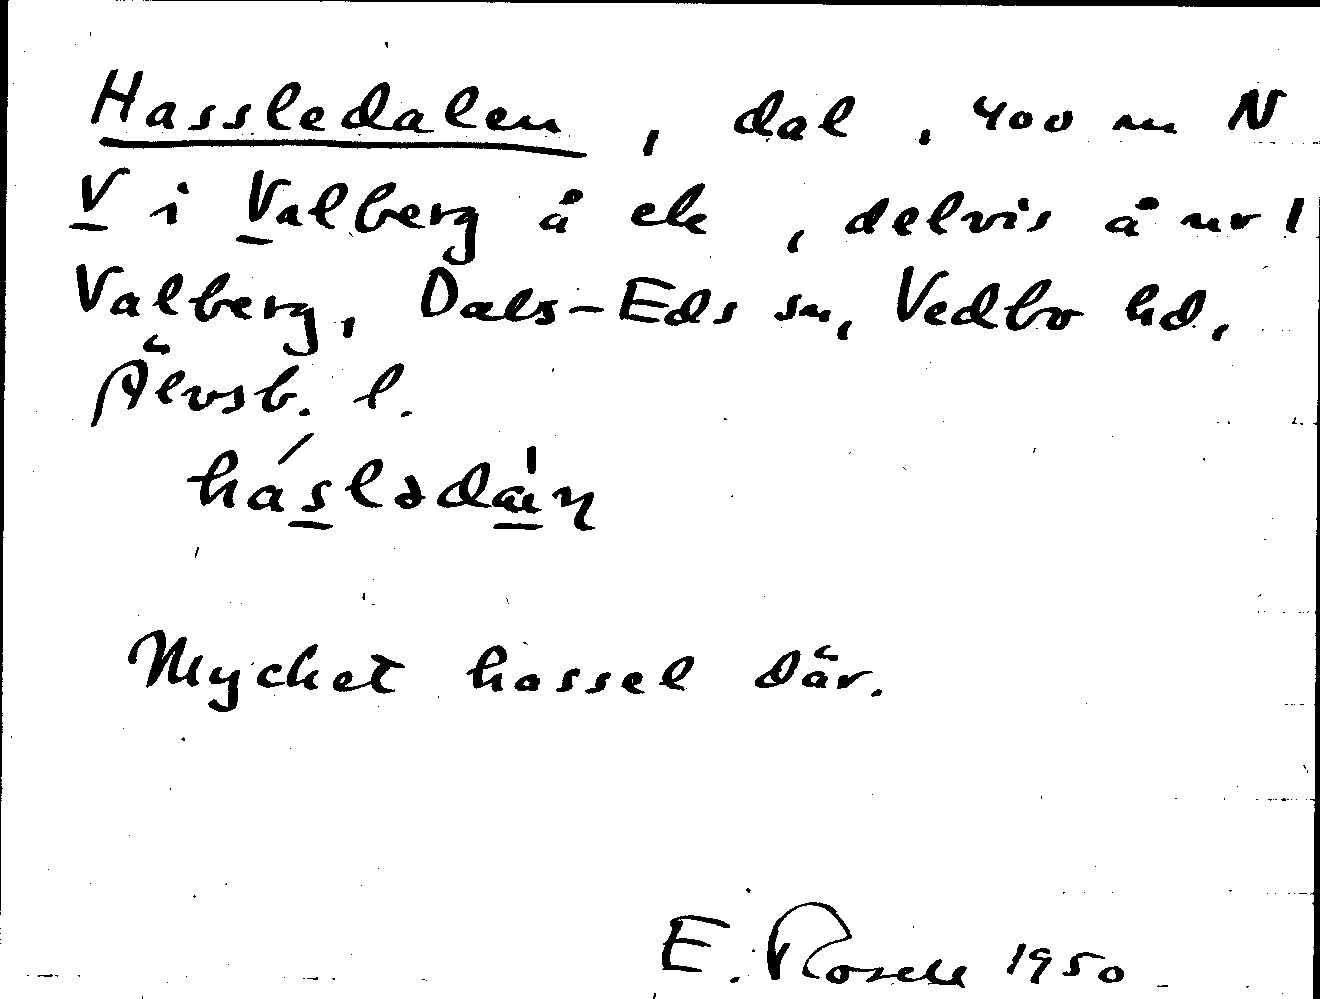 Hassledalen, dal, 400 m N
V i Valberg å ek, delvis å nr 1
Valberg, Dals-Eds sn, Vedbo hd,
Älvsb. l.
Mycket hassel där.
E. Rosell 1950